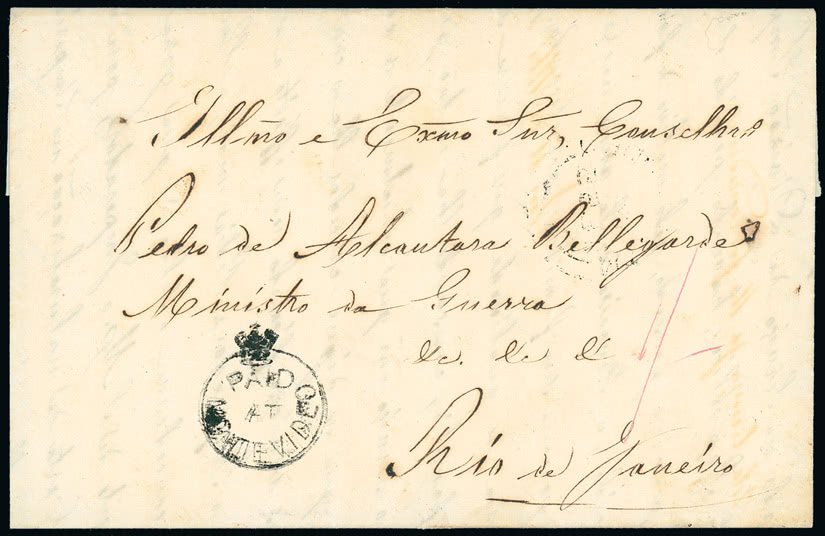 Illmo e Exmo Snr, Conselhro
Pedro de Alcantara Bellegarde
Ministro da Guerra
&c. &c &
1/-
Rio de Janeiro
PAID
AT
MONTEVIDEO